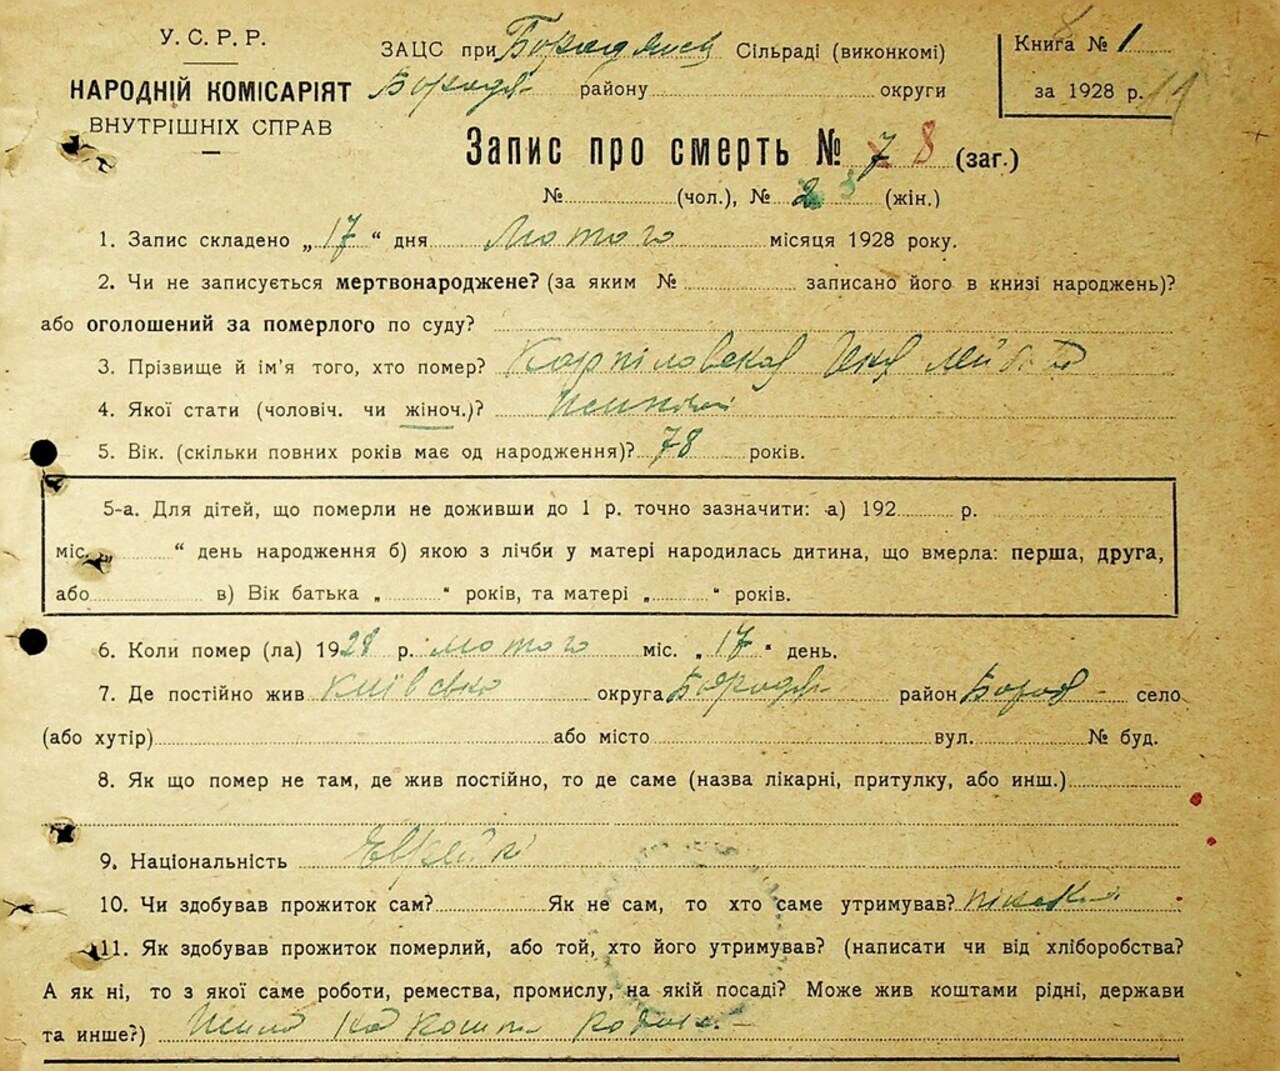 У. С. Р. Р.
НАРОДНІЙ КОМІСАРІЯТ
ВНУТРІШНІХ СПРАВ
ЗАЦС при Сільраді (виконкомі)
Бородян району округи
Книга № 1
за 1928 р.
Запис про смерть № 7 8 (заг.)
№ (чол.), № 2 3 (жін.)
1. Запис складено „17“ дня Лютого місяця 1928 року.
2. Чи не записується мертвонароджене? (за яким № записано його в книзі народжень)?
або оголошений за померлого по суду?
3. Прізвище й ім'я того, хто помер? Карпіловская
4. Якої стати (чоловіч. чи жіноч.)?
5. Вік. (скільки повних років має од народження)? 78 років.
5-а. Для дітей, що померли не доживши до 1 р. точно зазначити: а) 192 р.
міс. „ “ день народження б) якою з лічби у матері народилась дитина, що вмерла: перша, друга,
або в) Вік батька „ “ років, та матері „ “ років.
6. Коли помер (ла) 1928 р. лютого міс. „17“ день.
7. Де постійно жив Київсько округа Бородян район Бород село
(або хутір) або місто вул. № буд.
8. Як що помер не там, де жив постійно, то де саме (назва лікарні, притулку, або инш.)
9. Національність Еврейк
10. Чи здобував прожиток сам? Як не сам, то хто саме утримував?
11. Як здобував прожиток померлий, або той, хто його утримував? (написати чи від хліборобства?
А як ні, то з якої саме роботи, ремества, промислу, на якій посаді? Може жив коштами рідні, держави
та инше?) Жила на кошти